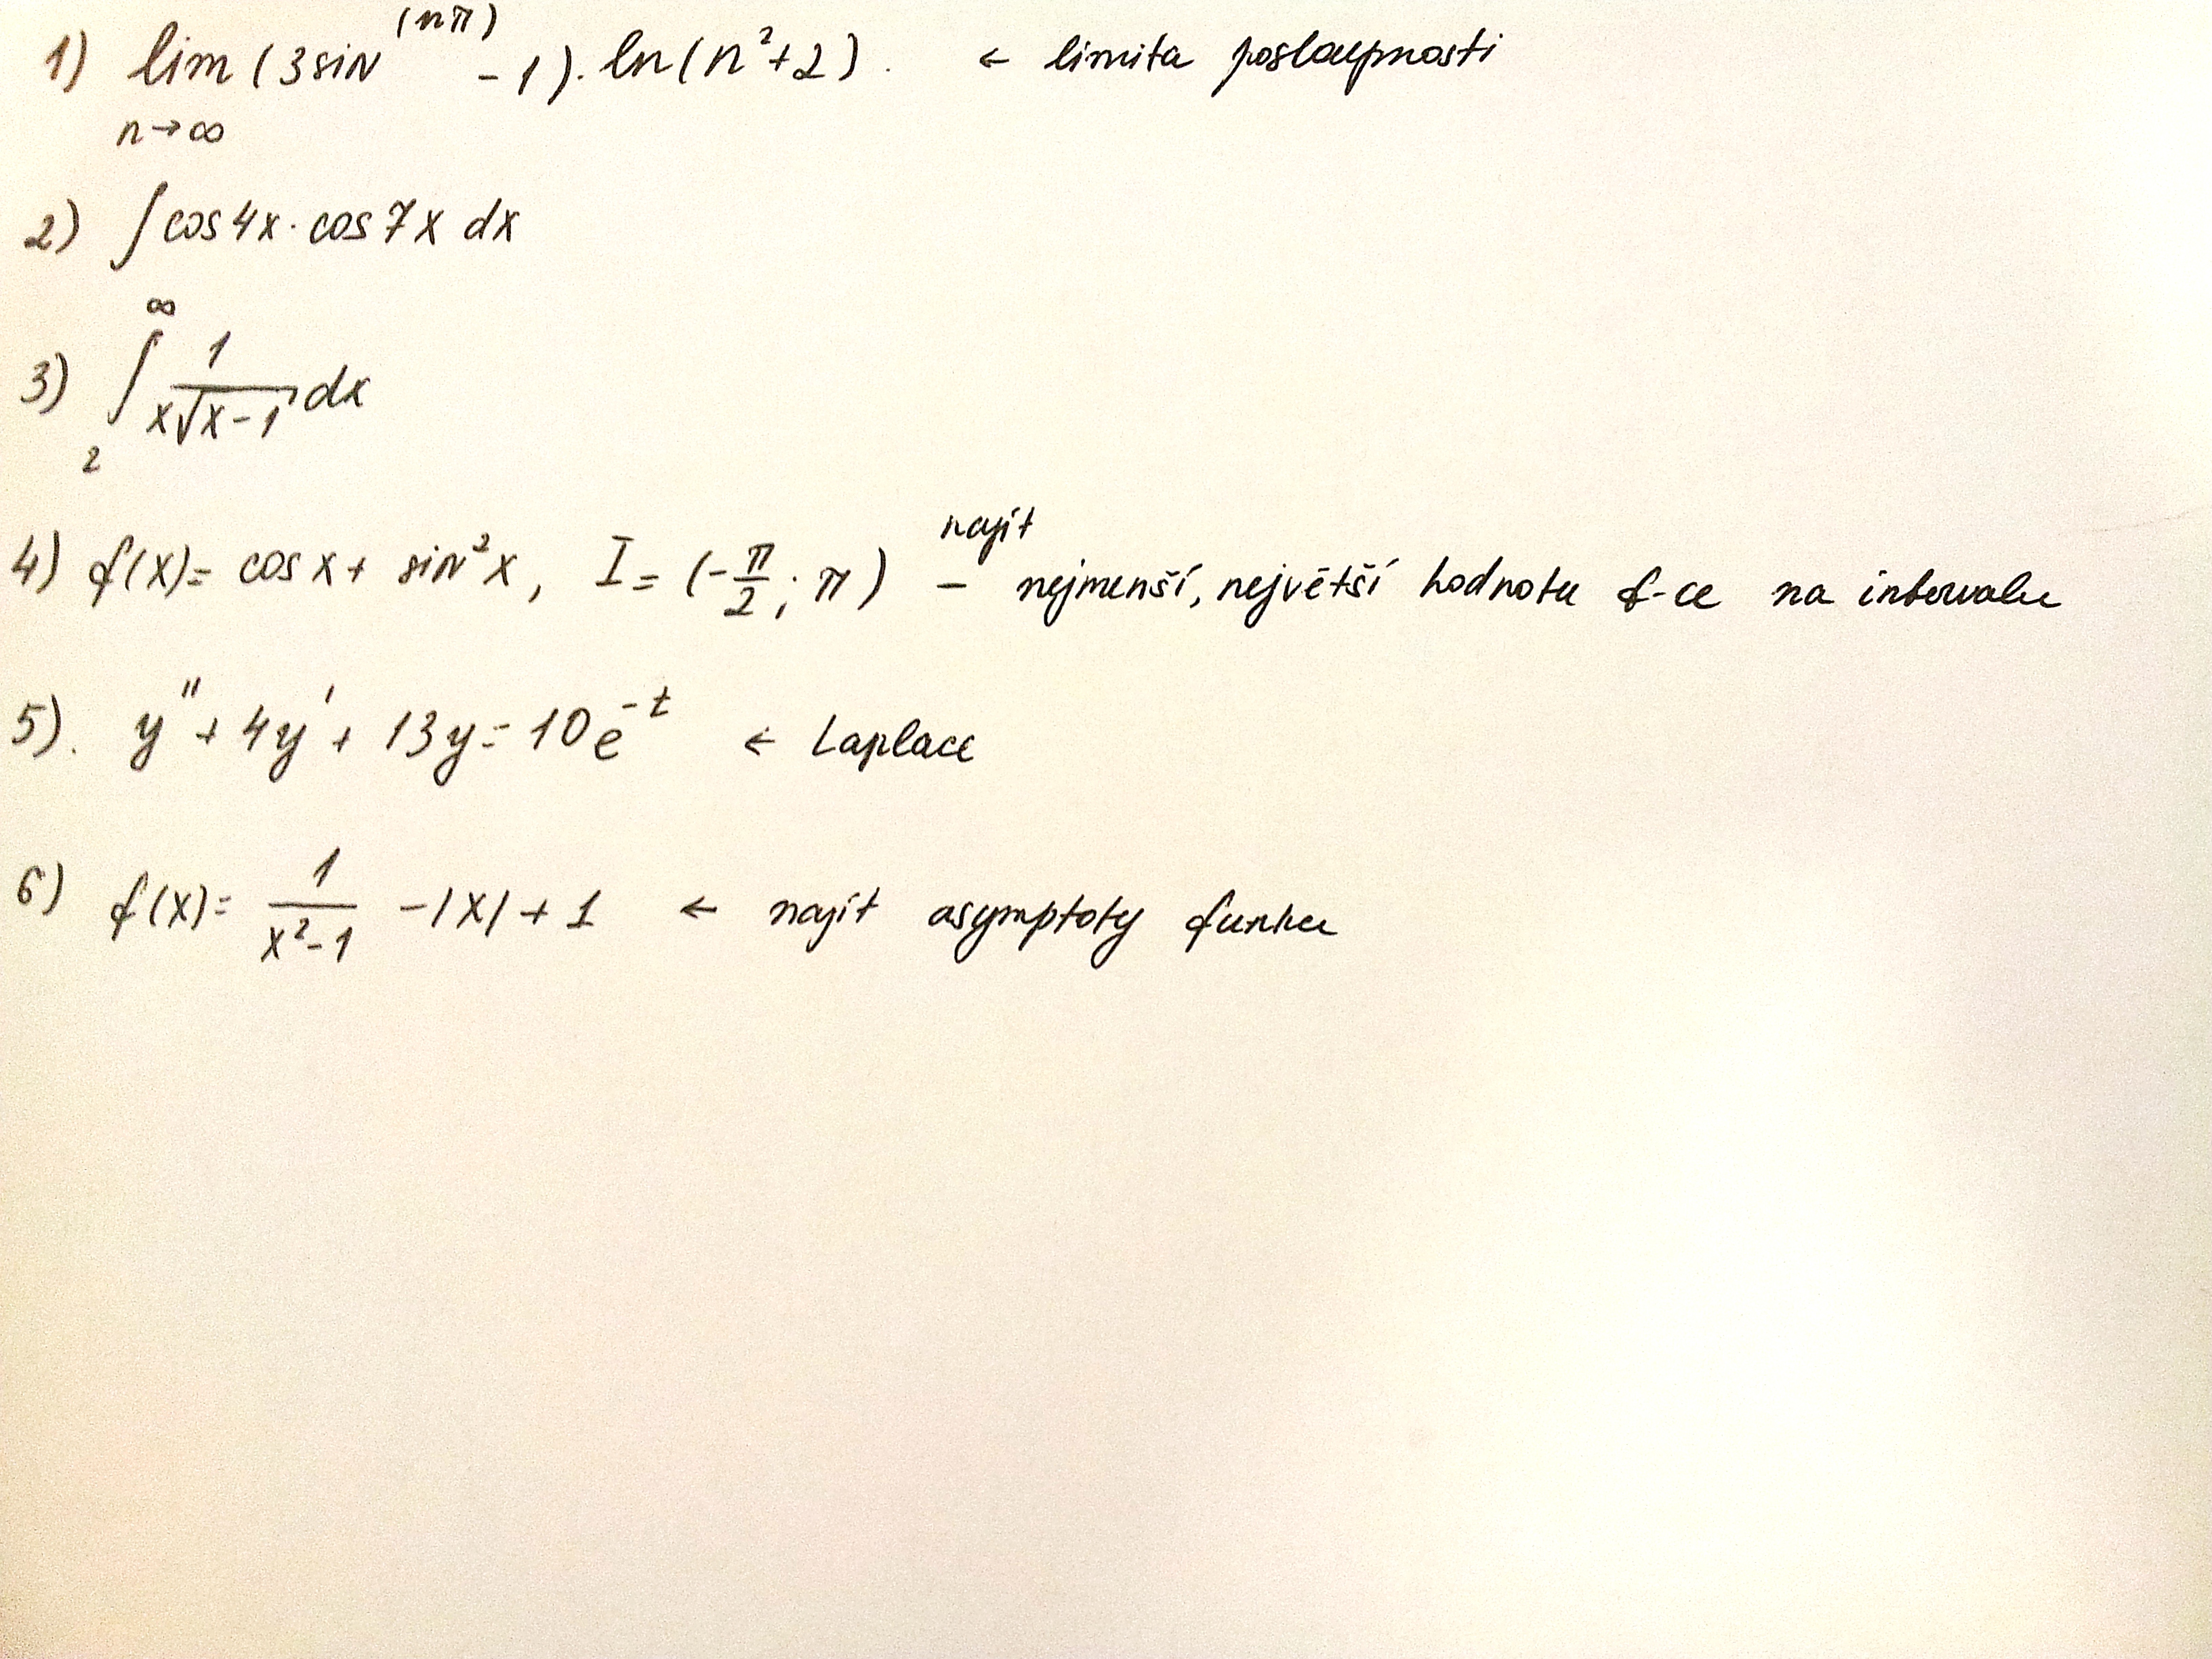 1) lim (3 sin^(nπ) - 1) · ln(n²+2). ← limita posloupnosti
n→∞
2) ∫ cos 4x · cos 7x dx
3) ∫₂^∞ 1/(x√(x-1)) dx
4) f(x) = cos x + sin²x, I = (-π/2; π) – najít nejmenší, největší hodnotu f-ce na intervalu
5). y'' + 4y' + 13y = 10e^-t ← Laplace
6) f(x) = 1/(x²-1) - |x| + 1 ← najít asymptoty funkce